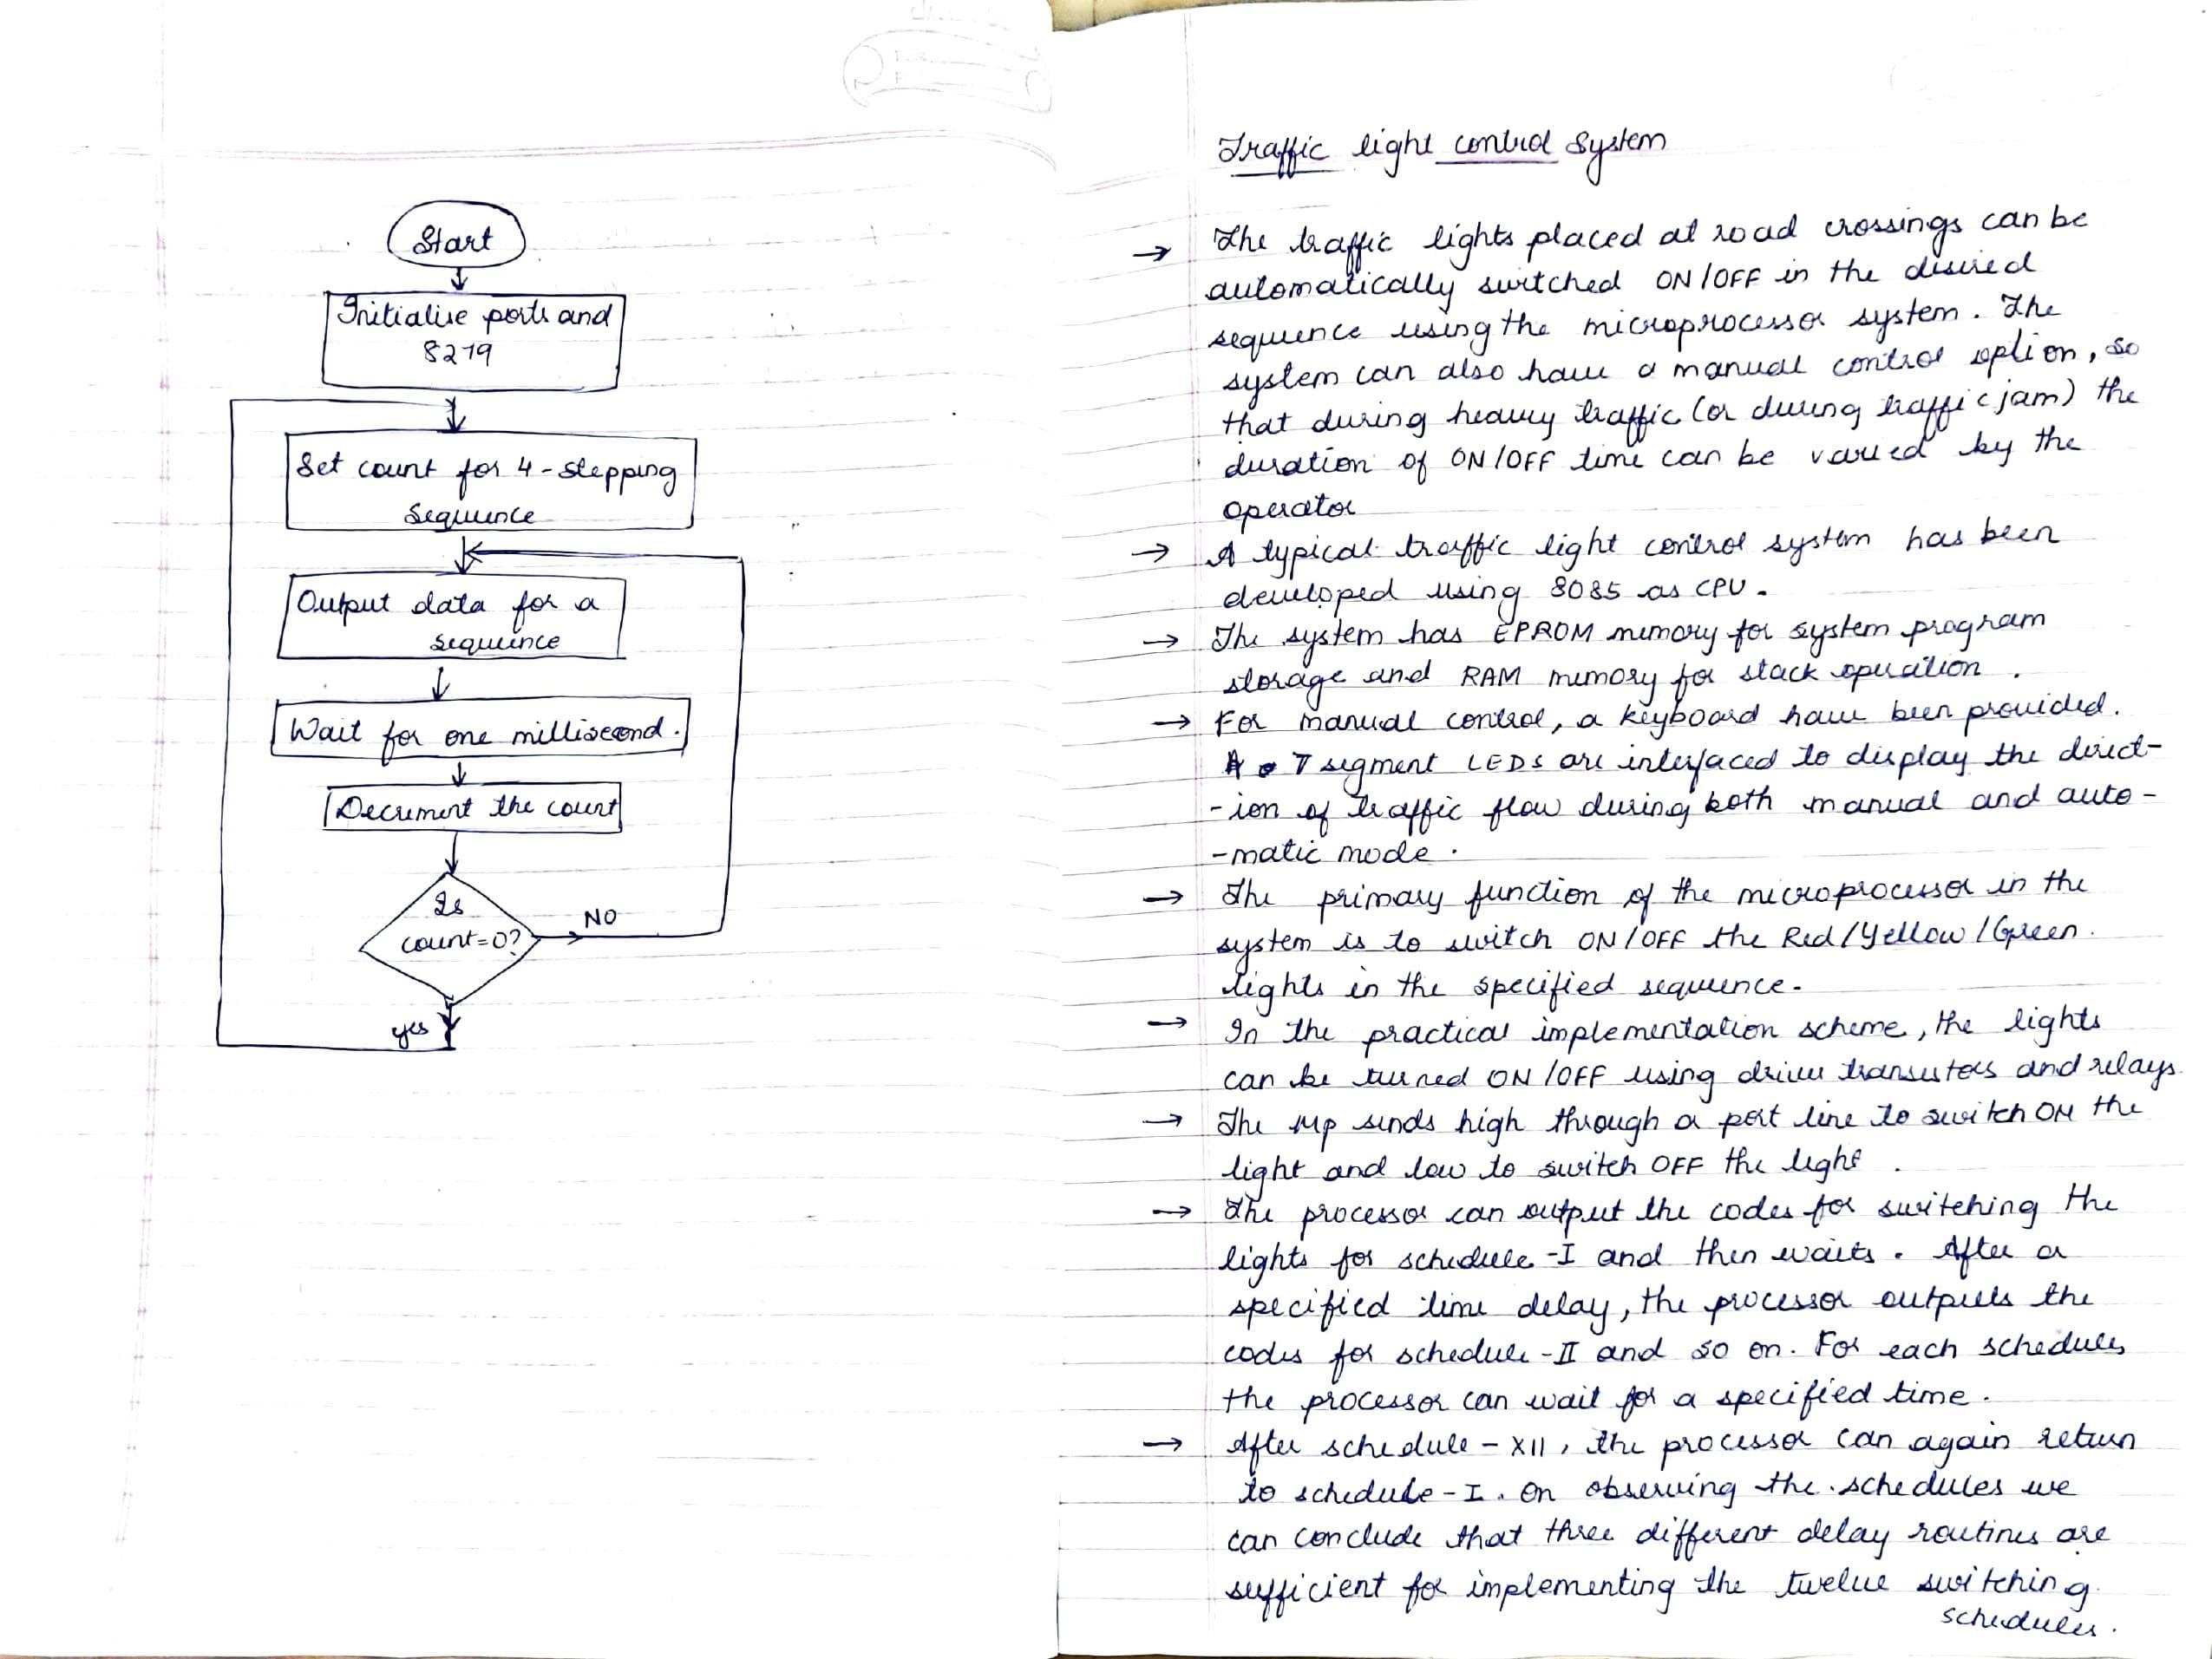 Start
Initialise ports and
8279
Set count for 4-stepping
Sequence
Output data for a
sequence
Wait for one millisecond.
Decrement the count
Is
count=0?
NO
yes
Traffic light control System
→ The traffic lights placed at road crossings can be
automatically switched ON/OFF in the desired
sequence using the microprocessor system. The
system can also have a manual control option, so
that during heavy traffic (or during traffic jam) the
duration of ON/OFF time can be varied by the
operator
→ A typical traffic light control system has been
developed using 8085 as CPU.
→ The system has EPROM memory for system program
storage and RAM memory for stack operation.
→ For manual control, a keyboard have been provided.
7 segment LEDs are interfaced to display the direct-
-ion of traffic flow during both manual and auto-
-matic mode.
→ The primary function of the microprocessor in the
system is to switch ON/OFF the Red/Yellow/Green
lights in the specified sequence.
→ In the practical implementation scheme, the lights
can be turned ON/OFF using driver transistors and relays.
→ The μp sends high through a port line to switch ON the
light and low to switch OFF the light.
→ The processor can output the codes for switching the
lights for schedule-I and then waits. After a
specified time delay, the processor outputs the
codes for schedule-II and so on. For each schedule,
the processor can wait for a specified time.
→ After schedule-XII, the processor can again return
to schedule-I. On observing the schedules we
can conclude that three different delay routines are
sufficient for implementing the twelve switching
schedules.